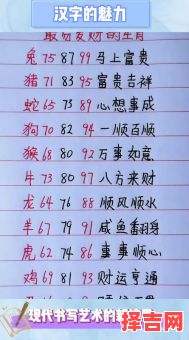 汉字的魅力
最易发财的生肖
兔 75 87 99 马上富贵
猪 71 83 95 富贵吉祥
蛇 65 73 89 心想事成
狗 70 82 94 一顺百顺
猴 68 80 92 万事如意
牛 73 80 97 八方来财
龙 64 76 88 顺风顺水
羊 67 79 91 咸鱼翻身
虎 62 74 86 事事顺心
鸡 69 81 93 财运亨通
现代书写艺术的
择吉网
zejiw.com